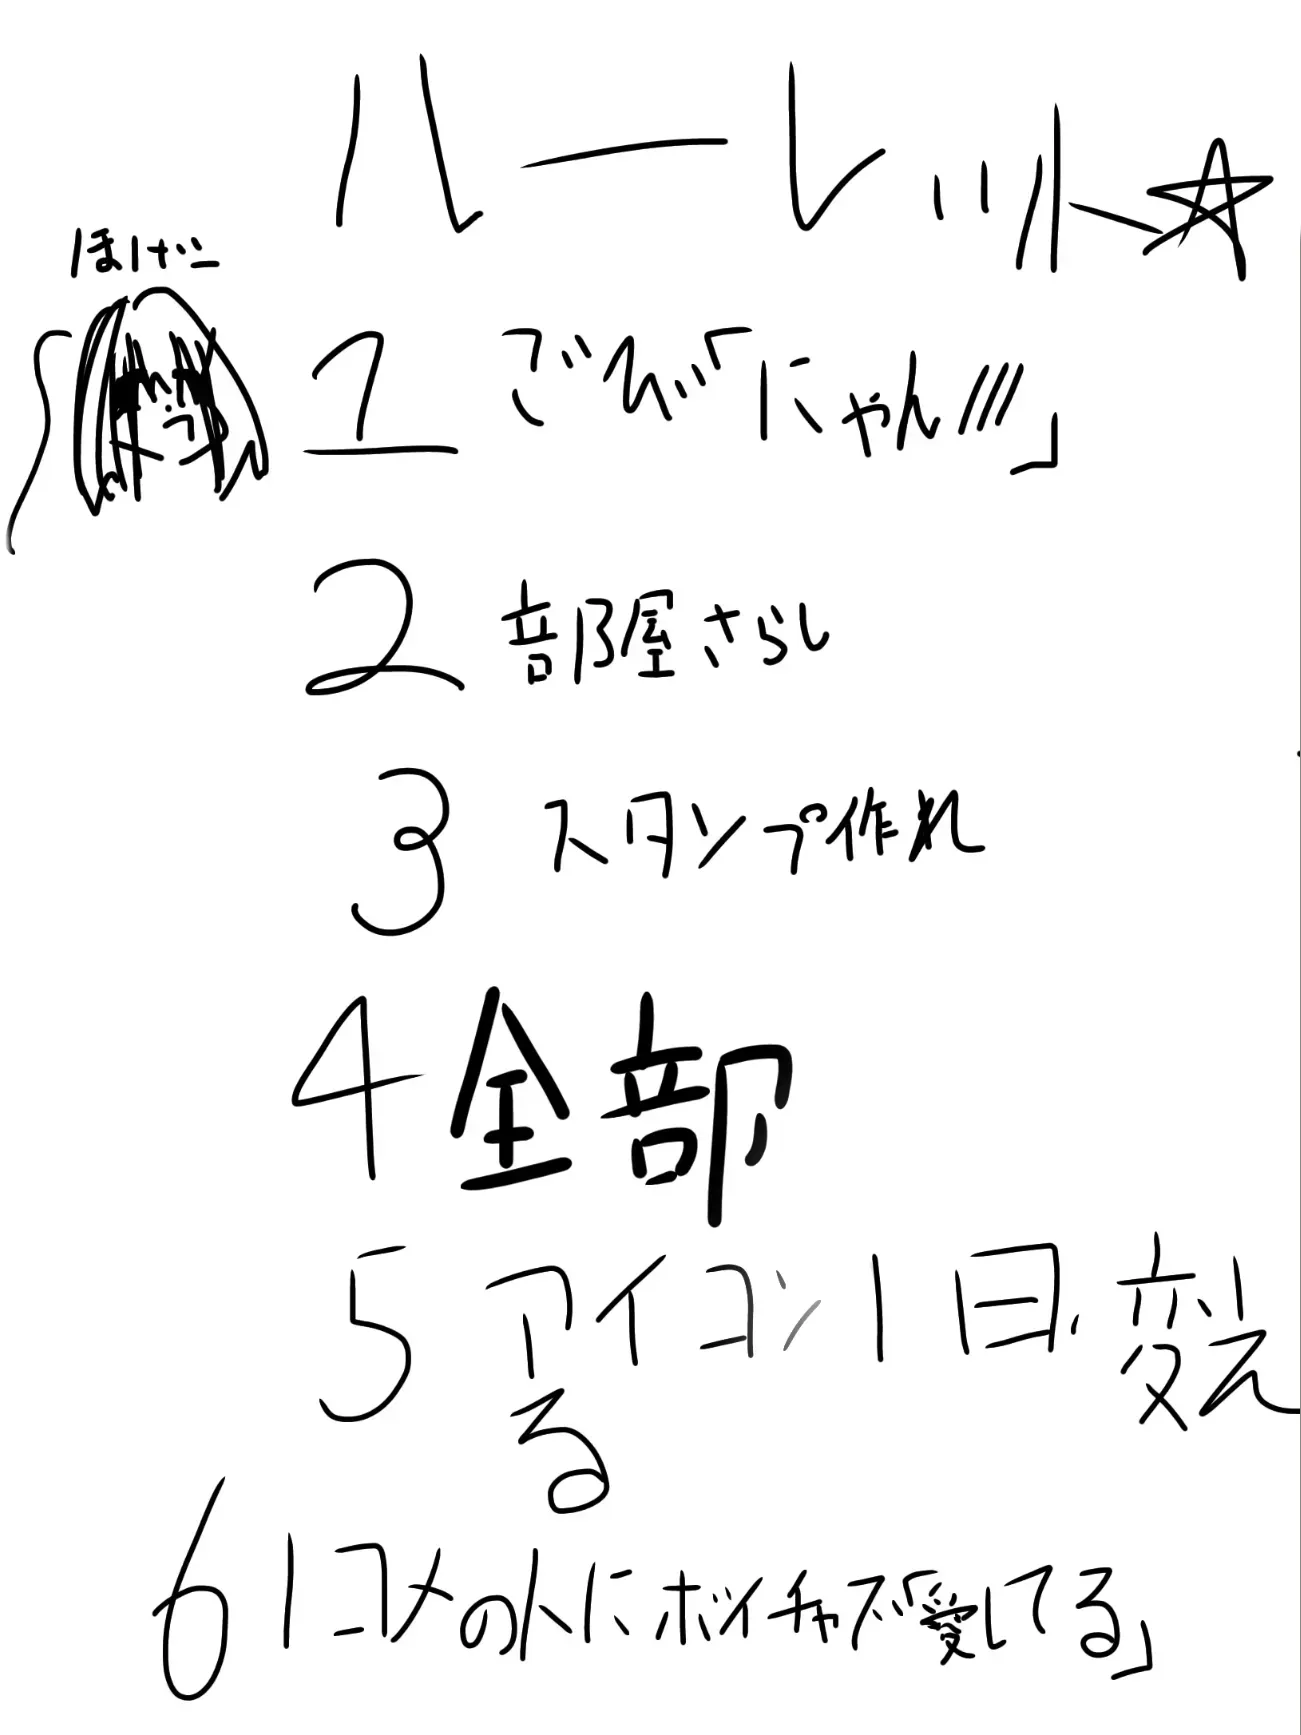 ルーレット☆
1 ごびで「にゃん///」
2 部屋さらし
3 スタンプ作れ
4 全部
5 アイコン1日変え
る
6 1コメの人にボイチャで「愛してる」